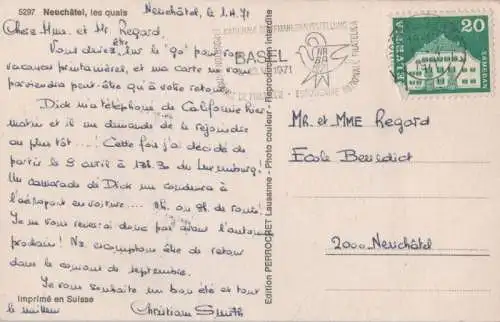 5297 Neuchâtel, les quais
Neuchâtel, le 1.4.71
Chers Mme. et Mr. Regard,
être
Vous devez, sur le "go" pour vos
vacances printanières, et ma carte ne vous
parviendra peut-être qu'à votre retour.
Dick m'a téléphoné de Californie hier
matin et il me demande de le rejoindre
au plus tôt ...! Cette fois j'ai décidé de
partir le 9 avril à 17h.30 du Luxembourg!
Un camarade de Dick me conduira à
l'aéroport en voiture... 7h. ou 8h. de route!
Je ne vous reverrai donc pas avant l'automne
prochain! Ns. escomptons être de retour
dans le courant de septembre.
Je vous souhaite un bon été et tout
le meilleur
Christiane Smith
Imprimé en Suisse
Edition PERROCHET Lausanne - Photo couleur - Reproduction interdite
BASEL
1971
HELVETIA
20
SAMEDAN
Mr. et MME Regard
Ecole Benedict
2000 Neuchâtel